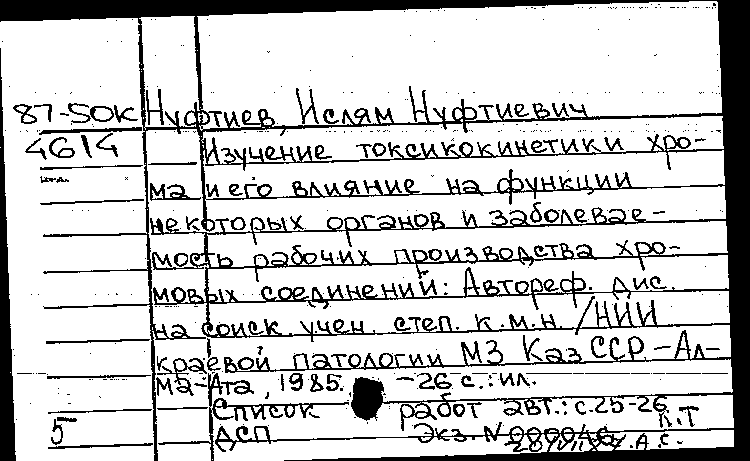 87-50К Нуфтиев, Ислям Нуфтиевич
4614 Изучение токсикокинетики хро-
ма и его влияние на функции
некоторых органов и заболевае-
мость рабочих производства хро-
мовых соединений: Автореф. дис.
на соиск. учен. степ. к.м.н. /НИИ
краевой патологии МЗ КазССР.-Ал-
ма-Ата, 1985. -26 с.:ил.
Список работ авт.: с.25-26
5 ДСП Экз. N 000046 К.Т
А.С.